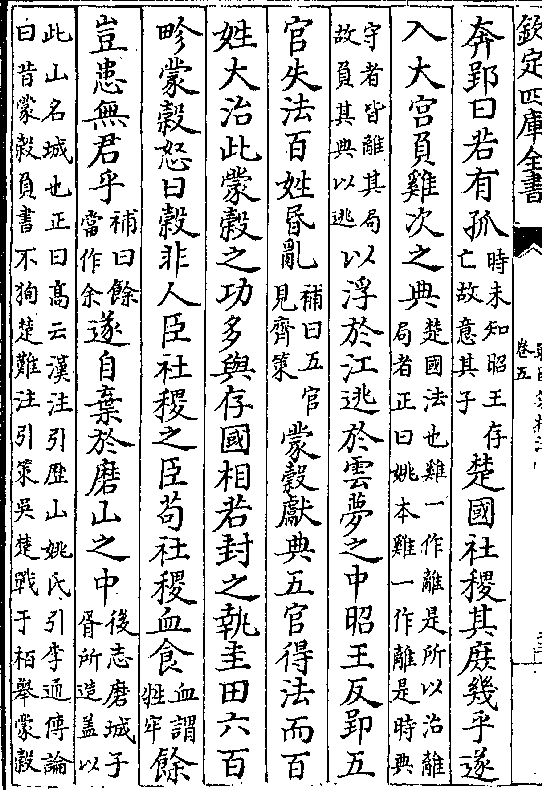 欽定四庫全書
卷五
奔郢曰若有孤時未知昭王存亡故意其子楚國社稷其庶幾乎遂
入大宮負雞次之典楚國法也雞一作離是所以治離局者正曰姚本雞一作離是時典
守者皆離其局故負其典以逃以浮於江逃於雲夢之中昭王反郢五
官失法百姓昏亂補曰五官見齊策蒙穀獻典五官得法而百
姓大治此蒙穀之功多與存國相若封之執圭田六百
畛蒙穀怒曰穀非人臣社稷之臣苟社稷血食血謂牲牢餘
豈患無君乎補曰餘當作余遂自棄於磨山之中後志磨城子胥所造蓋以
此山名城也正曰高云漢注引歴山姚氏引李通傳論曰昔蒙穀負書不狥楚難注引策吳楚戰于栢舉蒙穀